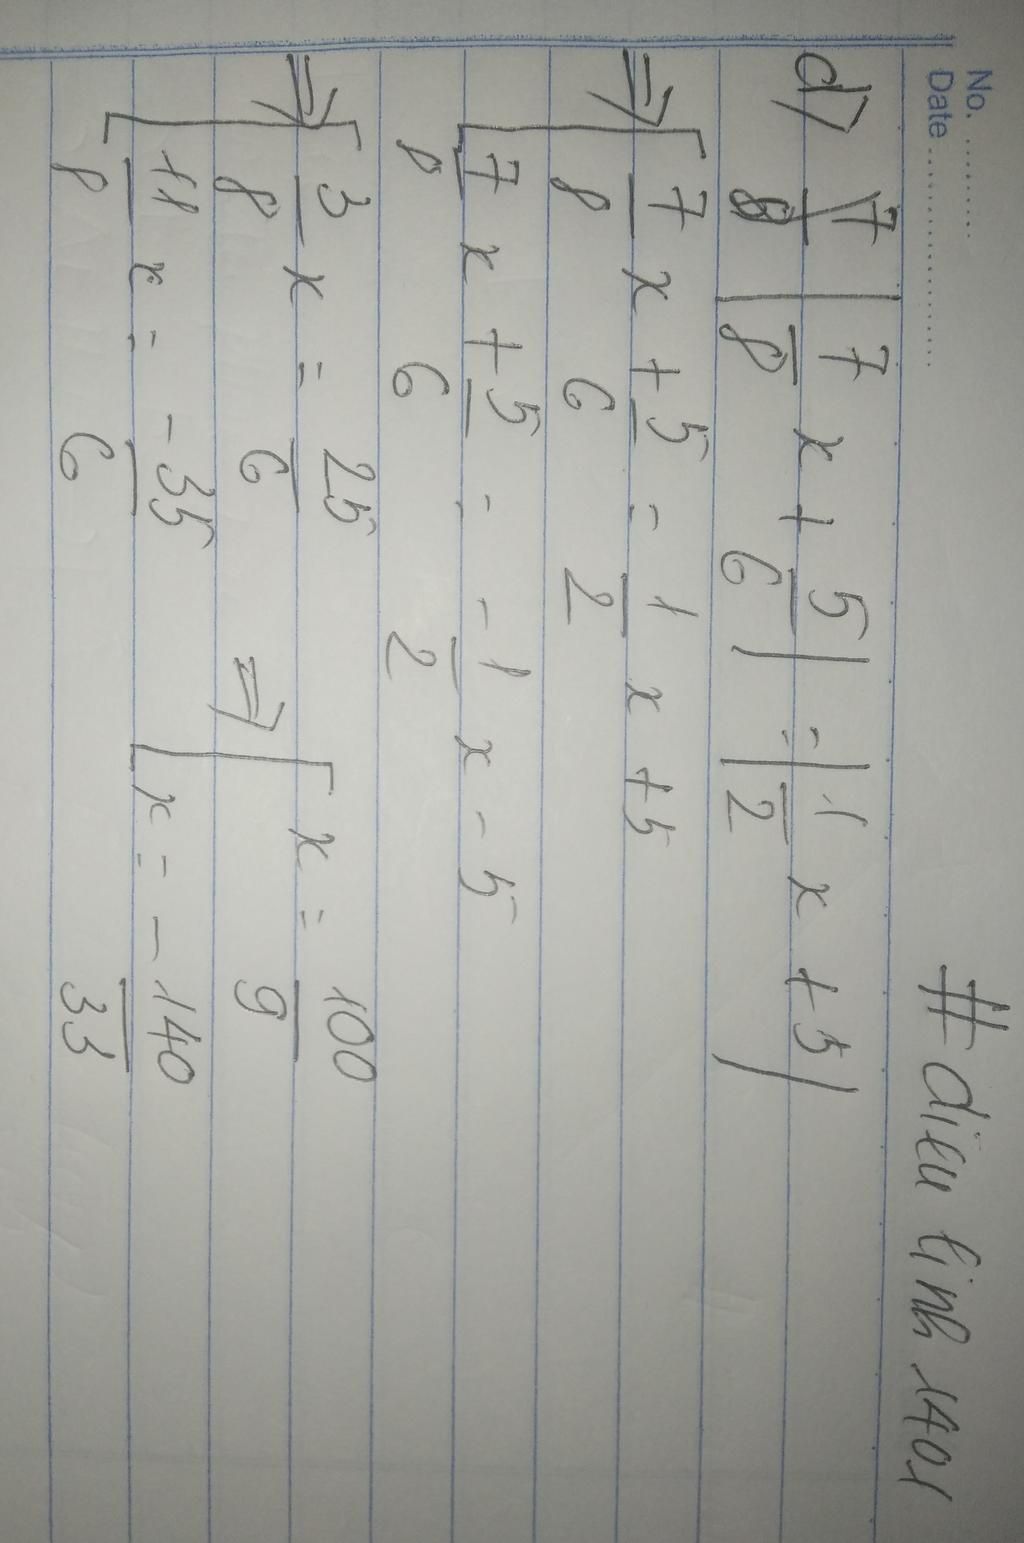 No. ..........
Date ........................
# diệu linh 1401
d) |7/8 x + 5/6| = |1/2 x + 5|
=> [ 7/8 x + 5/6 = 1/2 x + 5
7/8 x + 5/6 = -1/2 x - 5
=> [ 3/8 x = 25/6 => [ x = 100/9
11/8 x = -35/6 x = -140/33